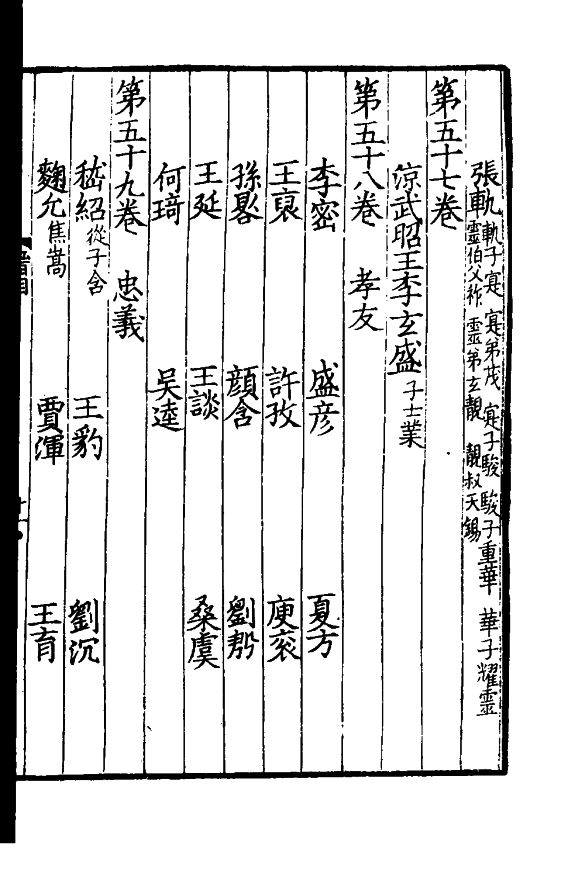 張軌 軌子寔 寔弟茂 寔子駿 駿子重華 華子耀靈
靈伯父祚 靈弟玄靚 靚叔天錫
第五十七卷
涼武昭王李玄盛 子士業
第五十八卷 孝友
李密 盛彦 夏方
王裒 許孜 庾袞
孫晷 顏含 劉殷
王延 王談 桑虞
何琦 吳逵
第五十九卷 忠義
嵇紹 從子含 王豹 劉沉
麴允 焦嵩 賈渾 王育